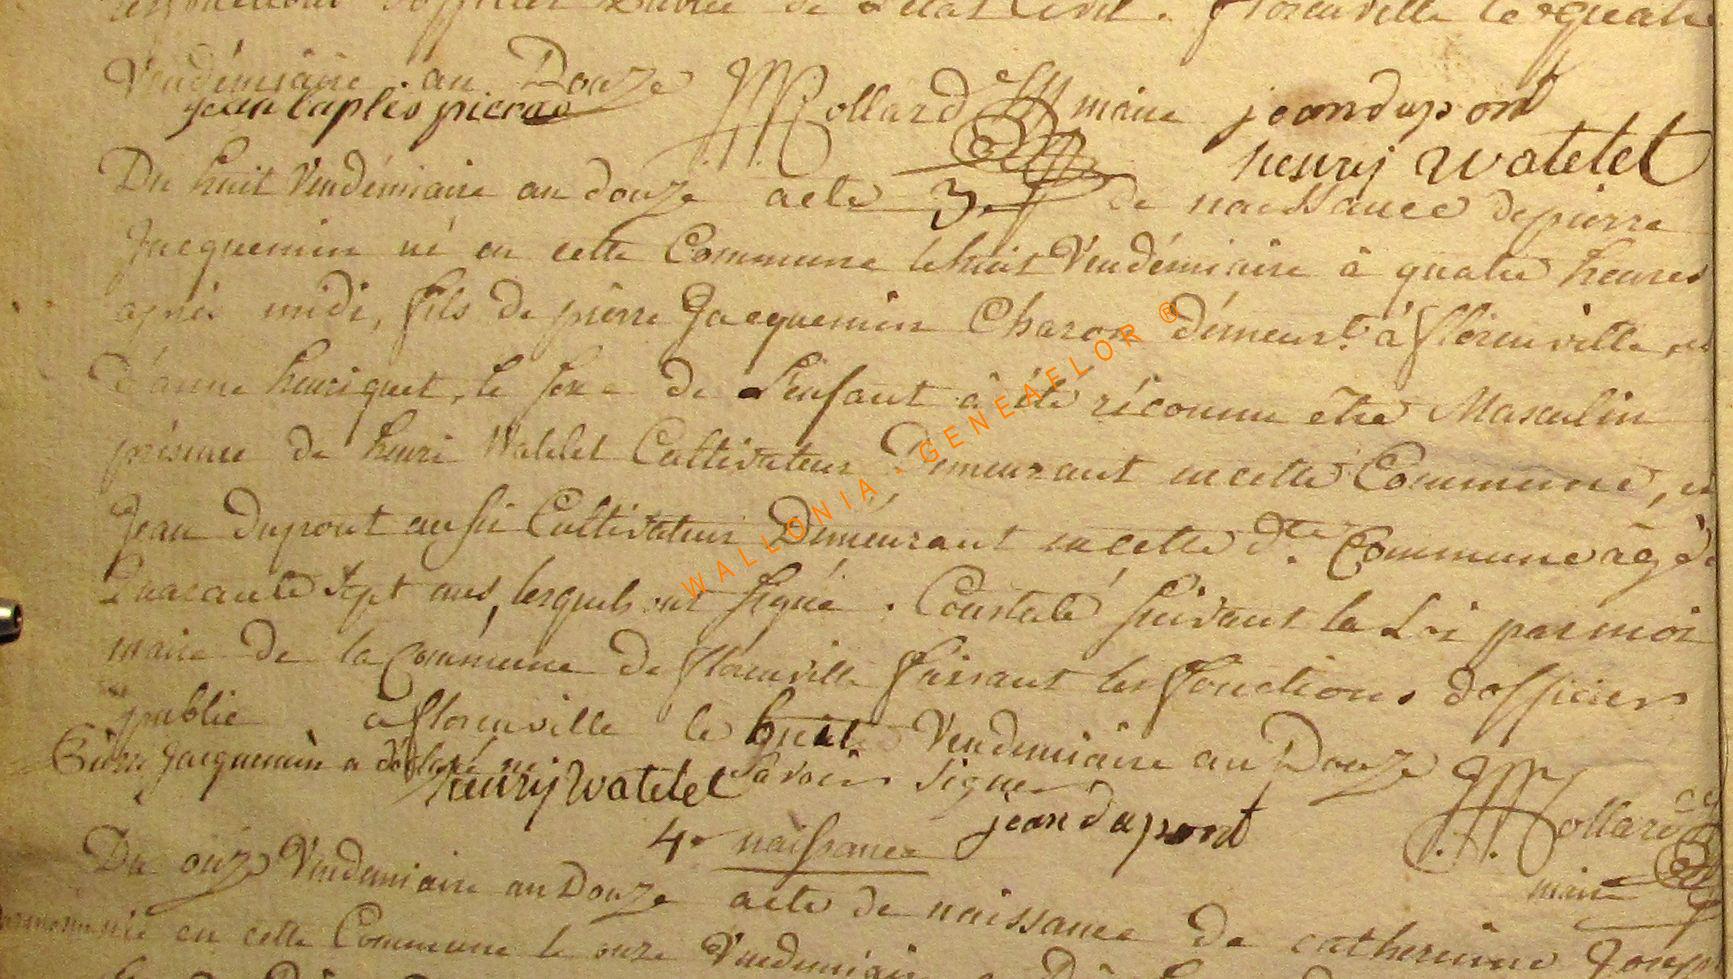 fonctions d'officier Public de l'etat Civil. florenville le quatre
Vendémiaire an Douze
jean baptis pierne Collard maire jean dupont
henrij watelet
Du huit Vendémiaire an douze acte 3.e de naissance de pierre
Jacquemin né en cette Commune le huit Vendémiaire à quatre heures
après midi, fils de pierre Jacquemin Charon démeurt. à florenville, et
d'anne henriquet, le sexe de L'enfant à été réconnu etre Masculin
présence de henri Watelet Cultivateur Demeurant en cette Commune, et
Jean Dupont aussi Cultivateur Démeurant en cette dte. Commune âgé de
Quarante sept ans, lesquels ont signé. Constaté suivant la Loi par moi
maire de la Commune de florenville faisant les fonctions d'officier
public a florenville le huit Vendemiaire an Douze
Pierre Jacquemin a déclaré ne savoir signer
henrij watelet jean dupont Collard
maire
4e naissance
Du onze Vendemiaire an Douze acte de naissance de catherinne Joseph
née en cette Commune le onze Vendemiaire
WALLONIA . GENEAFLOR ®